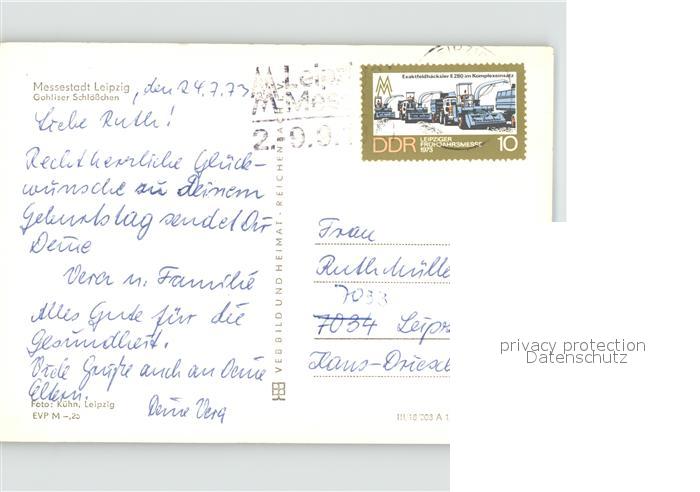 Messestadt Leipzig, den 24.7.73
Gohliser Schlößchen
Liebe Ruth!
Recht herzliche Glück-
wünsche zu Deinem
Geburtstag sendet Dir
Deine
Vera u. Familie
Alles Gute für die
Gesundheit.
Viele Grüße auch an Deine
Eltern.
Deine Vera
Foto: Kühn, Leipzig
EVP M -,25
VEB BILD UND HEIMAT · REICHENBACH
Exaktfeldhäcksler E 280 im Komplexeinsatz
DDR LEIPZIGER
FRÜHJAHRSMESSE
1973
10
Frau
Ruth Mülle
7033
7034 Leipz
Hans-Driesch
III/18/203 A 1
privacy protection
Datenschutz